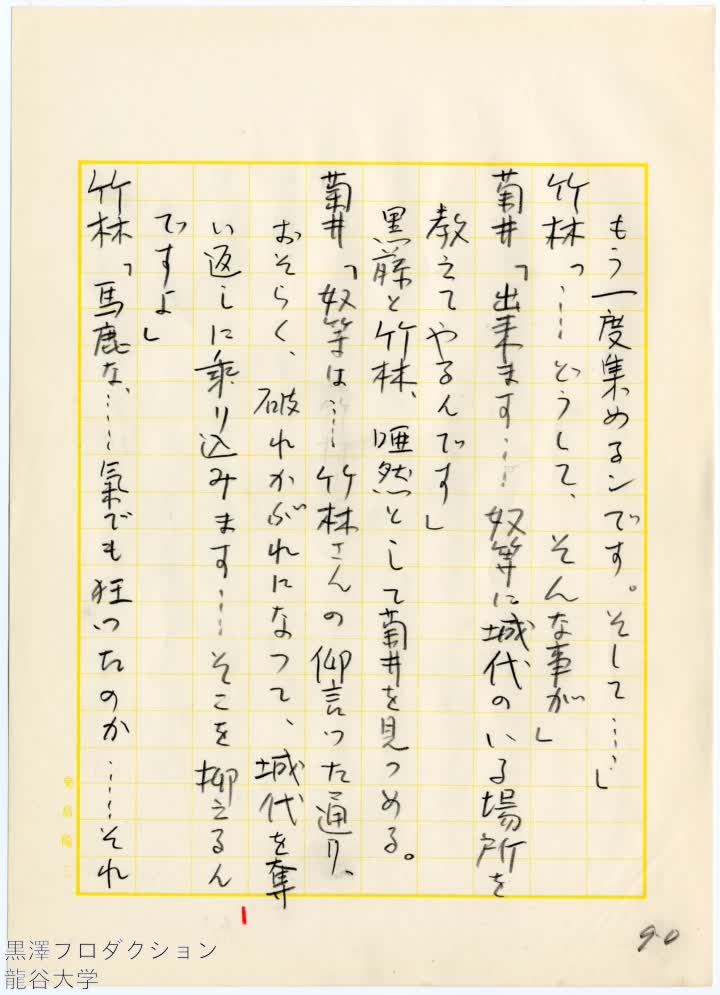 もう一度集めるンです。そして……」
竹林「……どうして、そんな事が」
菊井「出来ます……奴等に城代のいる場所を
教えてやるんです」
黒藤と竹林、唖然として菊井を見つめる。
菊井「奴等は……竹林さんの仰言つた通り、
おそらく、破れかぶれになつて、城代を奪
い返しに乗り込みます……そこを抑えるん
ですよ」
竹林「馬鹿な、……氣でも狂つたのか……それ
90
黒澤プロダクション
龍谷大学